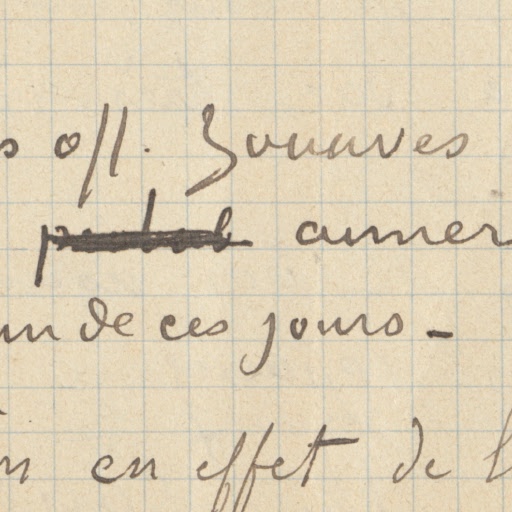 s off. Zouaves
amer
un de ces jours -
en effet de l